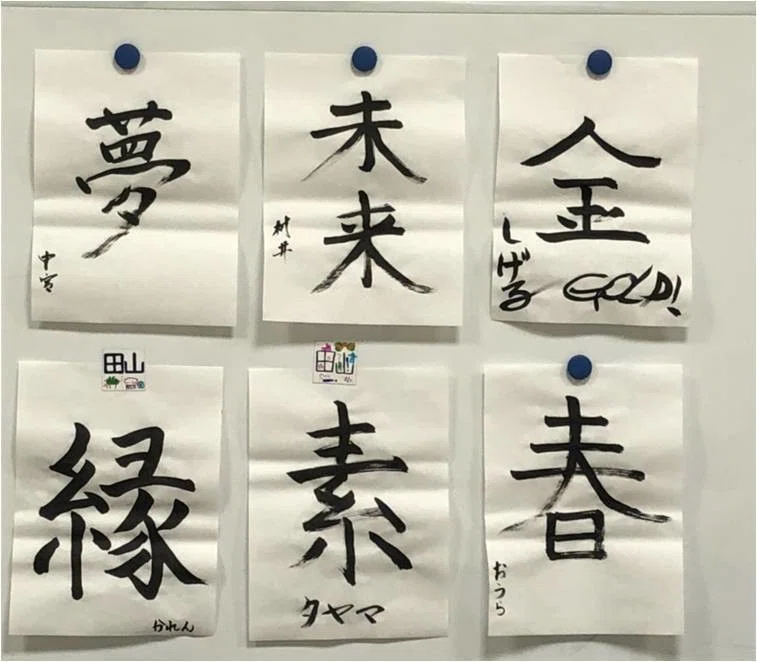 夢
中宮
未
来
村井
金
しげる
GOLD!
田山
縁
かれん
田山
素
タヤマ
春
おうら